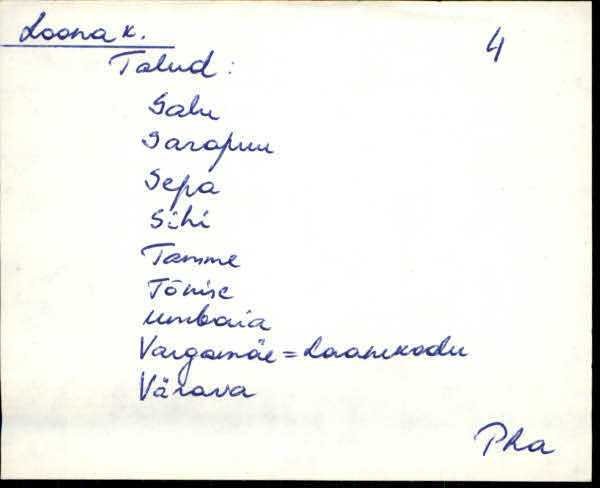 Loona k.
4
Talud:
Salu
Sarapuu
Sepa
Sihi
Tamme
Tõnise
Umbaia
Vargamäe = Laanekodu
Värava
Pha